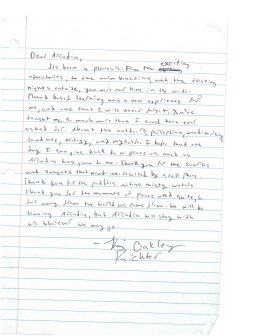 Dear Arcadia,
Its been a pleasure. From the exciting
adventures, to the and the freezing
nights outside, you were our home in the woods.
Placed based learning was a new experience for
me, and one that I will never forget. You've
taught me so much more than I could have ever
asked for. About the world, perception,
ecology, and myself. I hope that one
day I can give back to a place as much as
Arcadia has given to me. Thank you for the sunrises
and sunsets that went un-rivaled by a cell phone.
Thank you for the paddles across misty waters.
Thank you for the moments of peace and quiet, so
far away from the world we come from. We will be
leaving Arcadia, but Arcadia will stay with
us wherever we may go.
Oakley